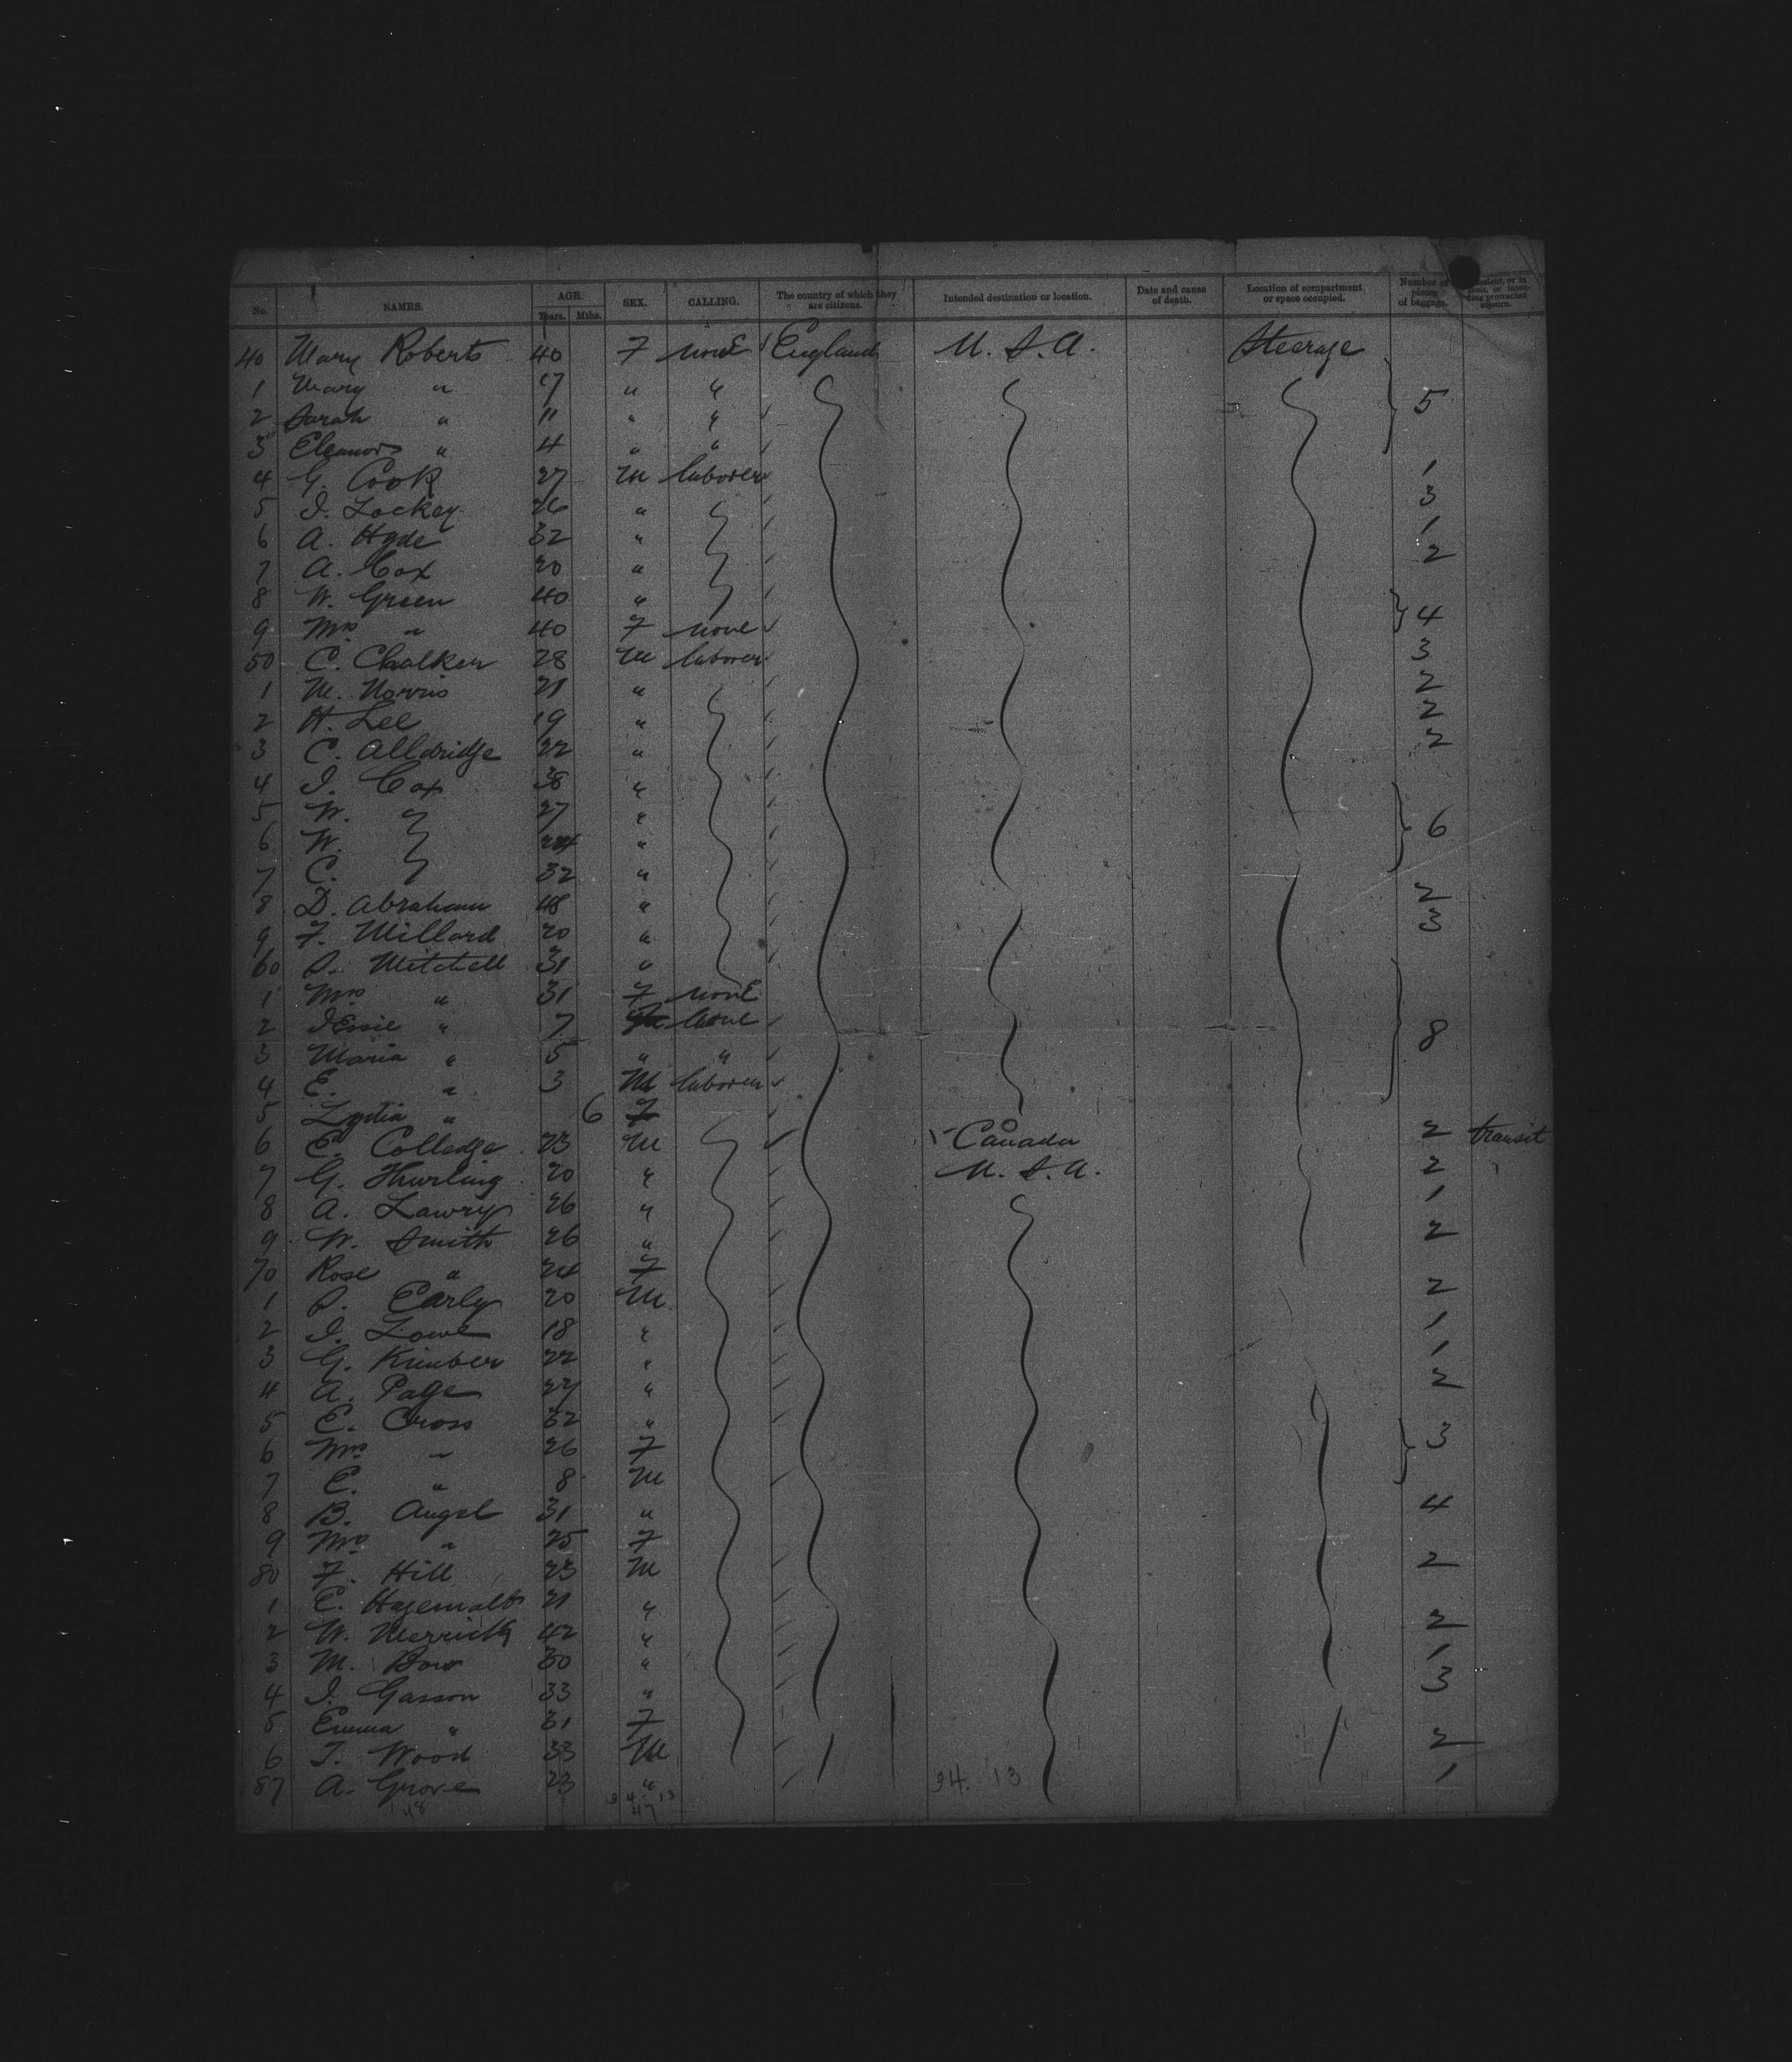 No. NAMES. AGE. Years. Mths. SEX. CALLING. The country of which they are citizens. Intended destination or location. Date and cause of death. Location of compartment or space occupied. Number of pieces of baggage. transit, or intending protracted sojourn.
40 Mary Roberts 40 F none England U.S.A. Steerage
1 Mary " 17 " " 5
2 Sarah " 11 " "
3 Eleanor " 4 " "
4 G. Cook 27 M laborer 1
5 J. Lockey 26 " 3
6 A. Hyde 32 " 1
7 A. Cox 20 " 2
8 W. Green 40 " 4
9 Mrs " 40 F none
50 C. Chalker 28 M laborer 3
1 M. Norris 21 " 2
2 H. Lee 19 " 2
3 C. Alldridge 22 " 2
4 J. Cox 38 "
5 W. " 27 " 6
6 W. " 24 "
7 C. " 32 "
8 D. Abraham 48 " 2
9 F. Millard 20 " 3
60 S. Mitchell 31 "
1 Mrs " 31 F none
2 Jessie " 7 none 8
3 Maria " 5 " "
4 E. " 3 M laborer
5 Lydia " 6 F
6 E. Colledge 23 M Canada 2 transit
7 G. Hurling 20 " U.S.A. 2
8 A. Lawry 26 " 1
9 W. Smith 26 " 2
70 Rose " 24 F
1 S. Early 20 M 2
2 J. Lowe 18 " 1
3 G. Kimber 22 " 1
4 A. Page 27 " 2
5 E. Cross 32 "
6 Mrs " 26 F 3
7 E. " 8 M
8 B. Angel 31 " 4
9 Mrs " 25 F
80 F. Hill 23 M 2
1 E. 21 "
2 W. 42 " 2
3 M. Dow 30 " 1
4 J. Gasson 33 " 3
5 Emma " 31 F
6 T. Wood 33 M 2
87 A. Grove 23 " 34. 13 1
48 34 13
47